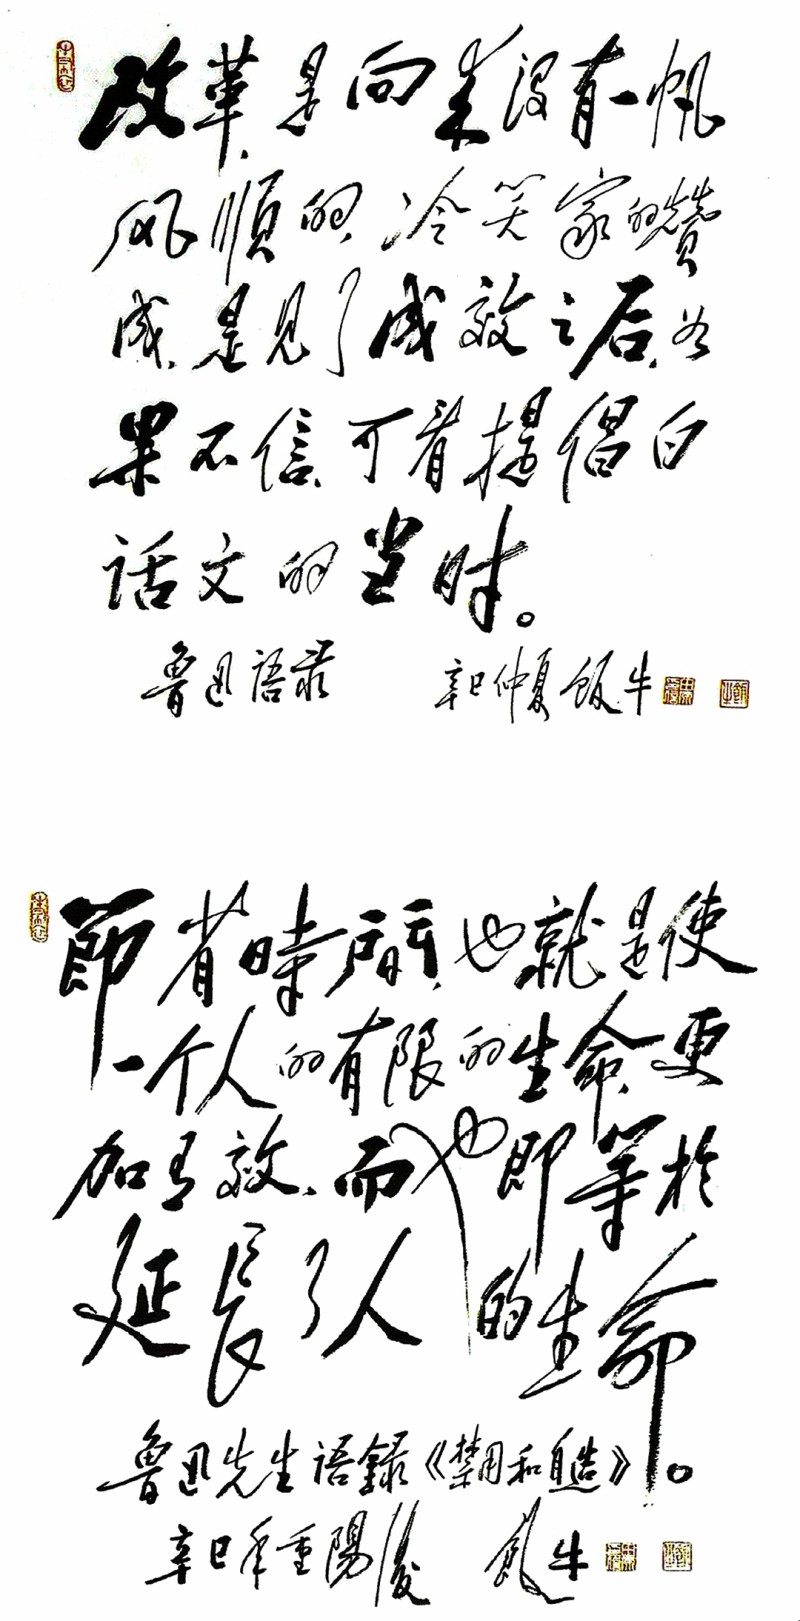 改革,是向来没有一帆
风順的,冷笑家的赞
成,是见了成效之后,如
果不信,可看提倡白
话文的当时。
魯迅语录 辛巳仲夏飯牛
節省時間,也就是使
一个人的有限的生命,更
加有效,而也即等於
延長了人的生命。
魯迅先生语録《禁用和自造》
辛巳年重陽後 飯牛